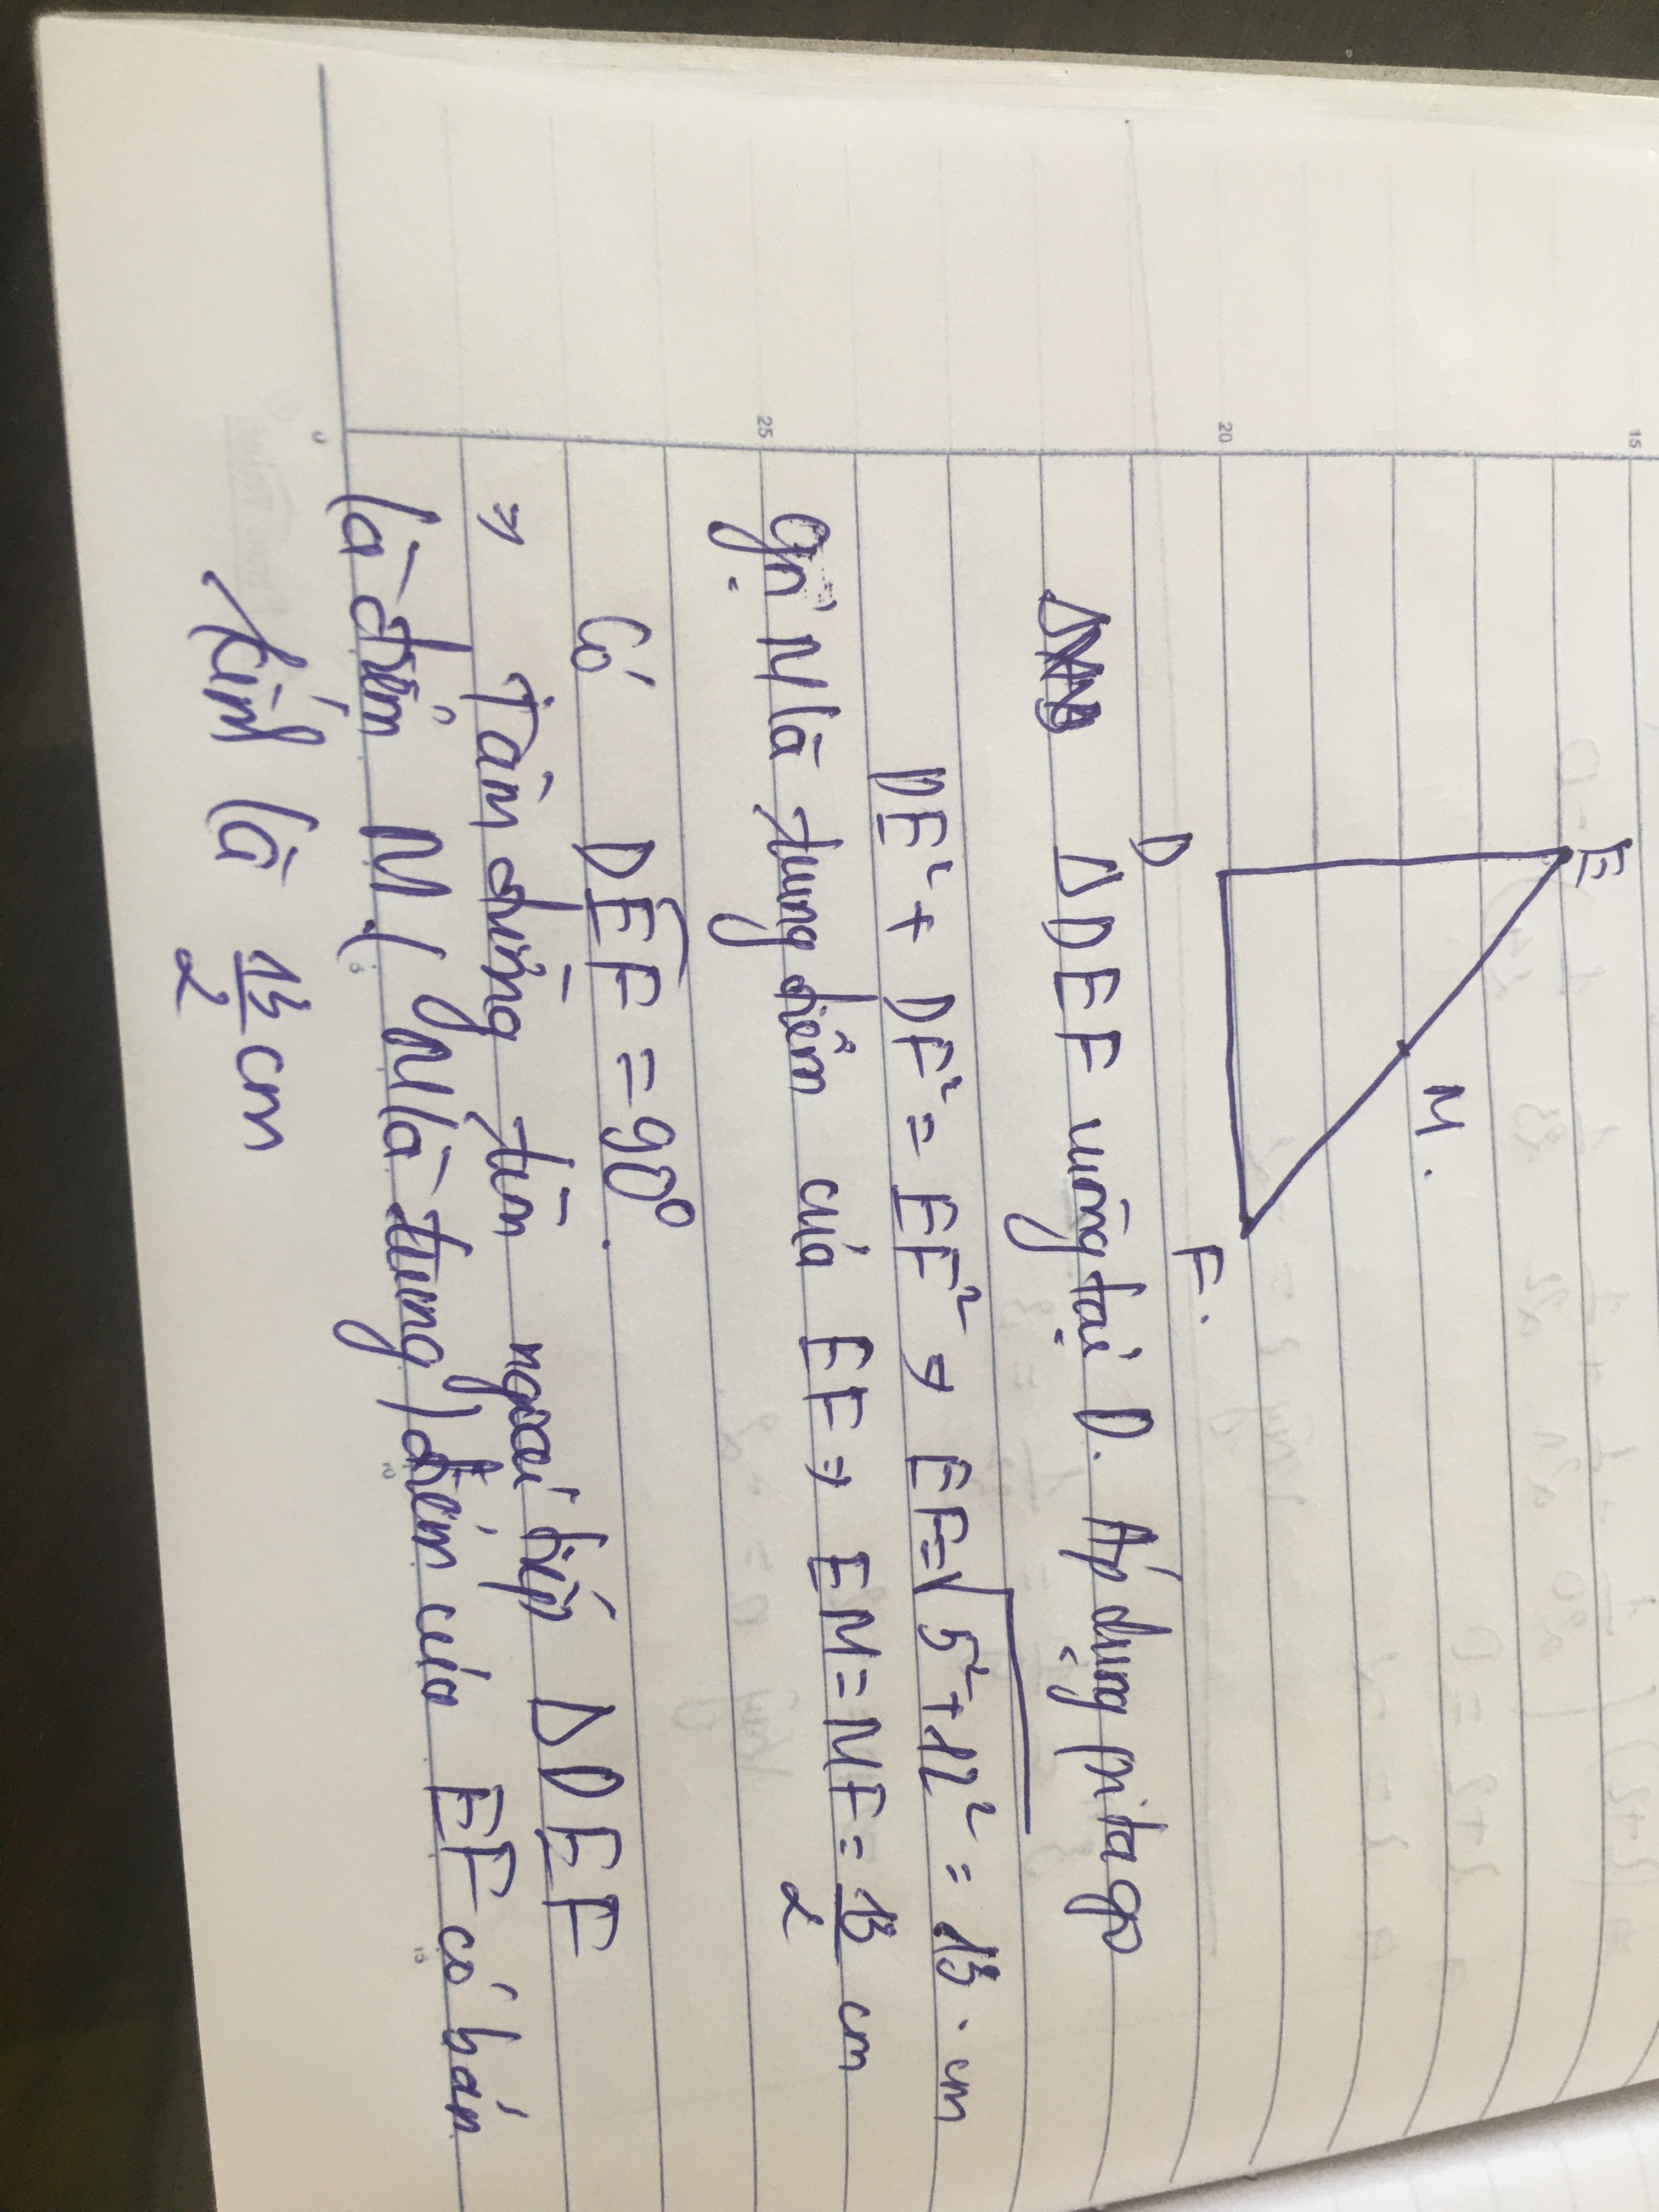 E
M.
D
F.
Δ DEF vuông tại D. Áp dụng Pitago
DE² + DF² = EF² ⇒ EF = √5² + 12² = 13 . cm
gọi M là trung điểm của EF ⇒ EM = MF = 13/2 cm
Có DEF = 90°.
⇒ Tâm đường tròn ngoại tiếp Δ DEF
là điểm M ( M là trung) điểm của EF có bán
kính là 13/2 cm
15
20
25